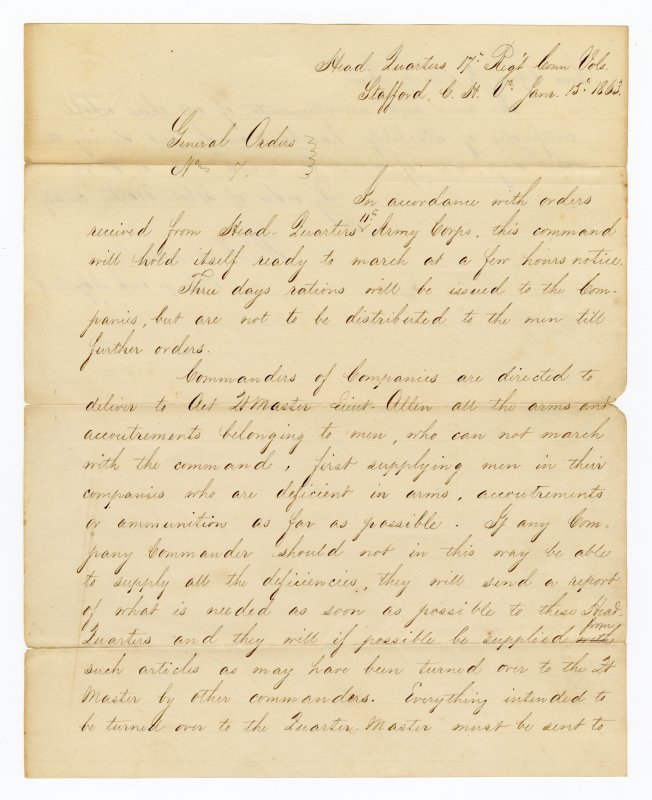 Head. Quarters 17" Reg't Conn Vols.
Stafford, C. H. Va. Janr. 15" 1863.
General Orders
No. 7.
In accordance with orders
received from Head-Quarters 11" Army Corps, this command
will hold itself ready to march at a few hours notice.
Three days rations will be issued to the Com-
panies, but are not to be distributed to the men till
further orders.
Commanders of Companies are directed to
deliver to Act Qt Master Lieut. Allen all the arms and
accoutrements belonging to men, who can not march
with the command, first supplying men in their
companies who are deficient in arms, accoutrements
or ammunition as far as possible. If any Com-
pany Commander should not in this way be able
to supply all the deficiencies, they will send a report
of what is needed as soon as possible to these Head.
Quarters and they will if possible be supplied with from
such articles as may have been turned over to the Qt
Master by other commanders. Everything intended to
be turned over to the Quarter-Master must be sent to